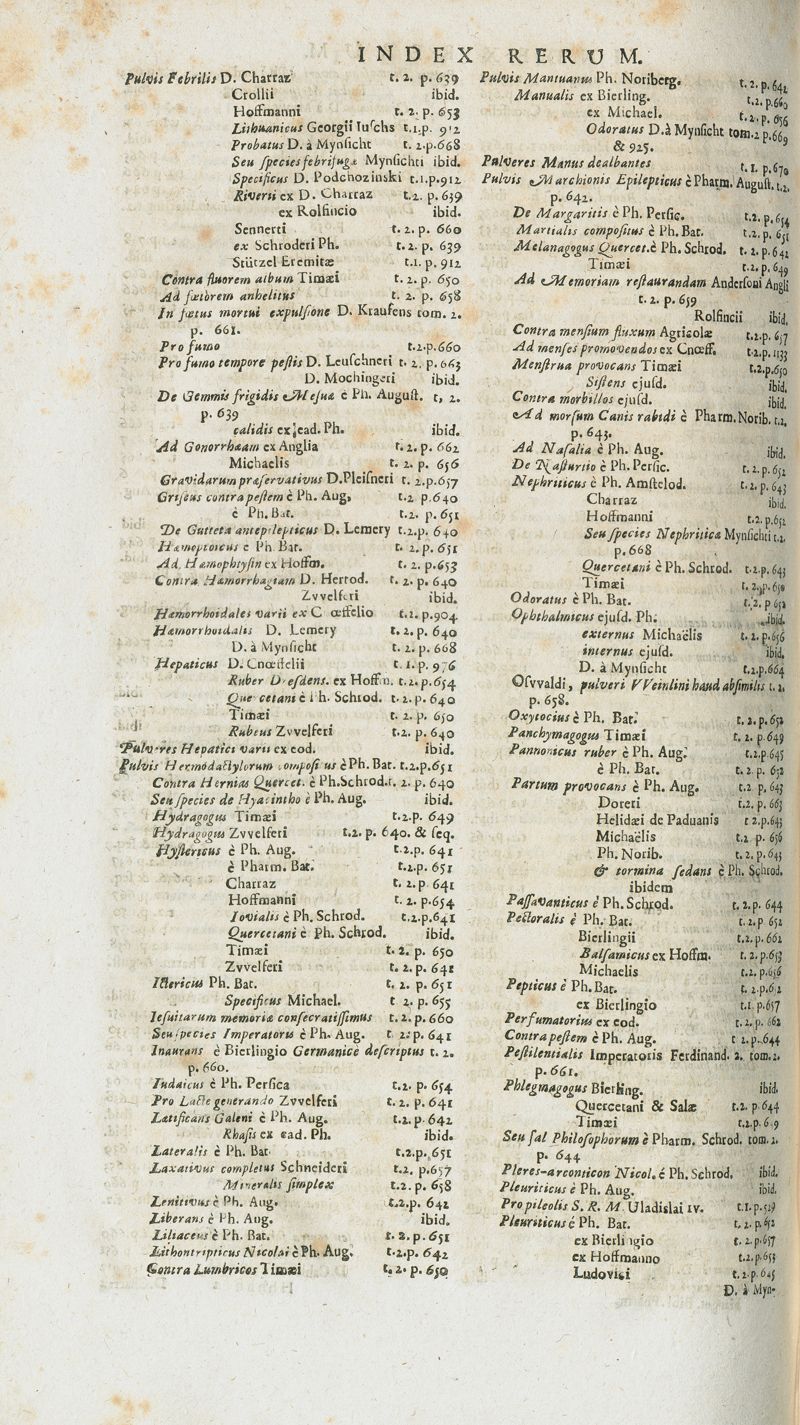 INDEX RERUM.
Pulvis Febrilis D. Charraz t. 2. p. 639
Crollii ibid.
Hoffmanni t. 2. p. 653
Lithuanicus Georgii Tuſchs t.1.p. 912
Probatus D. à Mynſicht t. 2.p.668
Seu ſpecies febrifuga Mynſichti ibid.
Specificus D. Podchozinski t.1.p.912
Riverii ex D. Charraz t.2. p. 639
ex Rolfincio ibid.
Sennerti t. 2. p. 660
ex Schroderi Ph. t. 2. p. 639
Stützel Eremitæ t.1. p. 912
Contra fluorem album Timæi t. 2. p. 650
Ad fœtorem anhelitus t. 2. p. 658
In fœtus mortui expulſione D. Kraufens tom. 2.
p. 661.
Pro fumo t.2.p.660
Pro fumo tempore peſtis D. Leuſchneri t. 2. p. 663
D. Mochingeri ibid.
De Gemmis frigidis Meſuæ è Ph. Auguſt. t. 2.
p. 639
calidis ex ead. Ph. ibid.
Ad Gonorrhæam ex Anglia t. 2. p. 662
Michaelis t. 2. p. 656
Gravidarum præſervativus D.Pleiſneri t. 2.p.657
Griſeus contra peſtem è Ph. Aug, t.2 p.640
è Ph. Bat. t.2. p. 651
De Gutteta antepilepticus D. Lemery t.2.p. 640
Hæmoptoicus è Ph. Bat. t. 2. p. 651
Ad Hæmophtyſin ex Hoffm. t. 2. p.653
Contra Hæmorrhagiam D. Herrod. t. 2. p. 640
Zvvelferi ibid.
Hæmorrhoidales varii ex Cnœffelio t.1. p.904.
Hæmorrhoidalis D. Lemery t. 2. p. 640
D. à Mynſicht t. 2. p. 668
Hepaticus D. Cnœffelii t. 1. p. 976
Ruber Dreſdens. ex Hoffm. t. 2.p.654
Quercetani è Ph. Schrod. t. 2. p. 640
Timæi t. 2. p. 650
Rubeus Zvvelferi t.2. p. 640
Pulveres Hepatici varii ex eod. ibid.
Pulvis Hermodactylorum compoſitus è Ph. Bat. t.2.p.651
Contra Hernias Quercet. è Ph.Schrod.t. 2. p. 640
Seu ſpecies de Hyacintho è Ph. Aug. ibid.
Hydragogus Timæi t.2.p. 649
Hydragogus Zvvelferi t.2. p. 640. & ſeq.
Hyſtericus è Ph. Aug. t.2.p. 641
è Pharm. Bat. t.2.p. 651
Charraz t. 2. p 641
Hoffmanni t. 2. p.654
Iovialis è Ph. Schrod. t.2.p.641
Quercetani è Ph. Schrod. ibid.
Timæi t. 2. p. 650
Zvvelferi t. 2. p. 641
Ictericus Ph. Bat. t. 2. p. 651
Specificus Michael. t 2. p. 655
Ieſuitarum memoriæ conſecratiſſimus t. 2. p. 660
Seu ſpecies Imperatoris è Ph. Aug. t 2. p. 641
Inaurans è Bierlingio Germanice deſcriptus t. 2.
p. 660.
Iudaicus è Ph. Perſica t.2. p. 654
Pro Lacte generando Zvvelferi t. 2. p. 641
Lætificans Galeni è Ph. Aug. t.2. p. 642
Rhaſis ex ead. Ph. ibid.
Lateralis è Ph. Bat. t.2.p. 651
Laxativus completus Schneideri t.2. p.657
Mineralis ſimplex t.2. p. 658
Lenitivus è Ph. Aug. t.2.p. 642
Liberans è Ph. Aug. ibid.
Liliaceus è Ph. Bat. t. 2. p. 651
Lithontripticus Nicolai è Ph. Aug. t.2.p. 642
Contra Lumbricos Timæi t. 2. p. 650
Pulvis Mantuanus Ph. Noriberg. t. 2. p. 642
Manualis ex Bierling. t.2. p.660
ex Michael. t. 2. p. 656
Odoratus D.à Mynſicht tom. 2 p.669
& 925.
Pulveres Manus dealbantes t. 1. p. 670
Pulvis Marchionis Epilepticus è Pharm. Auguſt. t.2.
p. 642.
De Margaritis è Ph. Perſic. t.2. p. 654
Martialis compoſitus è Ph. Bat. t.2. p. 651
Melanagogus Quercet.è Ph. Schrod. t. 2. p. 642
Timæi t.2.p. 649
Ad Memoriam reſtaurandam Anderſoni Angli
t. 2. p. 659
Rolfincii ibid.
Contra menſium fluxum Agricolæ t.2.p. 657
Ad menſes promovendos ex Cnœff. t.2.p. 1133
Menſtrua provocans Timæi t.2.p.650
Siſtens ejuſd. ibid.
Contra morbillos ejuſd. ibid.
Ad morſum Canis rabidi è Pharm. Norib. t.2.
p. 643.
Ad Naſalia è Ph. Aug. ibid.
De Naſturtio è Ph. Perſic. t. 2. p. 652
Nephriticus è Ph. Amſtelod. t. 2. p. 643
Charraz ibid.
Hoffmanni t.2. p.652
Seu ſpecies Nephritica Mynſichti t.2.
p. 668
Quercetani è Ph. Schrod. t.2.p. 643
Timæi t. 2. p. 650
Odoratus è Ph. Bat. t. 2. p 652
Ophthalmicus ejuſd. Ph. ibid.
externus Michaëlis t. 2. p.656
internus ejuſd. ibid.
D. à Mynſicht t.2.p.664
Oſvvaldi, pulveri VVeinlini haud abſimilis t. 2.
p. 658.
Oxytocius è Ph. Bat. t. 2. p. 652
Panchymagogus Timæi t. 2. p 649
Pannonicus ruber è Ph. Aug. t.2.p 645
è Ph. Bat. t. 2. p. 652
Partum provocans è Ph. Aug. t.2 p. 643
Doreri t.2. p. 663
Helidæi de Paduanis t 2.p.643
Michaëlis t.2 p. 656
Ph. Norib. t. 2. p. 643
& tormina ſedans è Ph. Schrod.
ibidem
Paſſavanticus è Ph. Schrod. t. 2. p. 644
Pectoralis è Ph. Bat. t. 2. p 652
Bierlingii t.2. p. 662
Balſamicus ex Hoffm. t. 2. p.653
Michaelis t.2. p.656
Pepticus è Ph. Bat. t. 2. p.652
ex Bierlingio t.1. p.657
Perfumatorius ex eod. t. 2. p. 662
Contra peſtem è Ph. Aug. t 2.p. 644
Peſtilentialis Imperatoris Ferdinand. 2. tom. 2.
p. 661.
Phlegmagogus Bierling. ibid.
Quercetani & Salæ t.2. p 644
Timæi t.2.p. 649
Seu ſal Philoſophorum è Pharm. Schrod. tom. 2.
p. 644
Pleres-arconticon Nicol. è Ph. Schrod. ibid.
Pleuriticus è Ph. Aug. ibid.
Pro pileolis S. R. M Uladislai IV. t.1. p. 529
Pleuriticus è Ph. Bat. t. 2. p. 652
ex Bierlingio t. 2. p.657
ex Hoffmanno t.2.p. 653
Ludovici t. 2. p 645
D. à Myn-